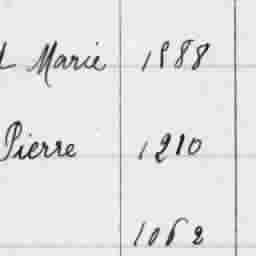 Marie 1988
Pierre 1210
1062